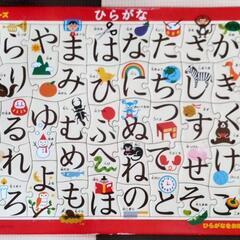 ひらがな
ーズ
かきくけ
さしすせそ
たちつてと
なにぬねの
はひふへほ
まみむめも
やゆよ
らりるれろ
ひらがなをお